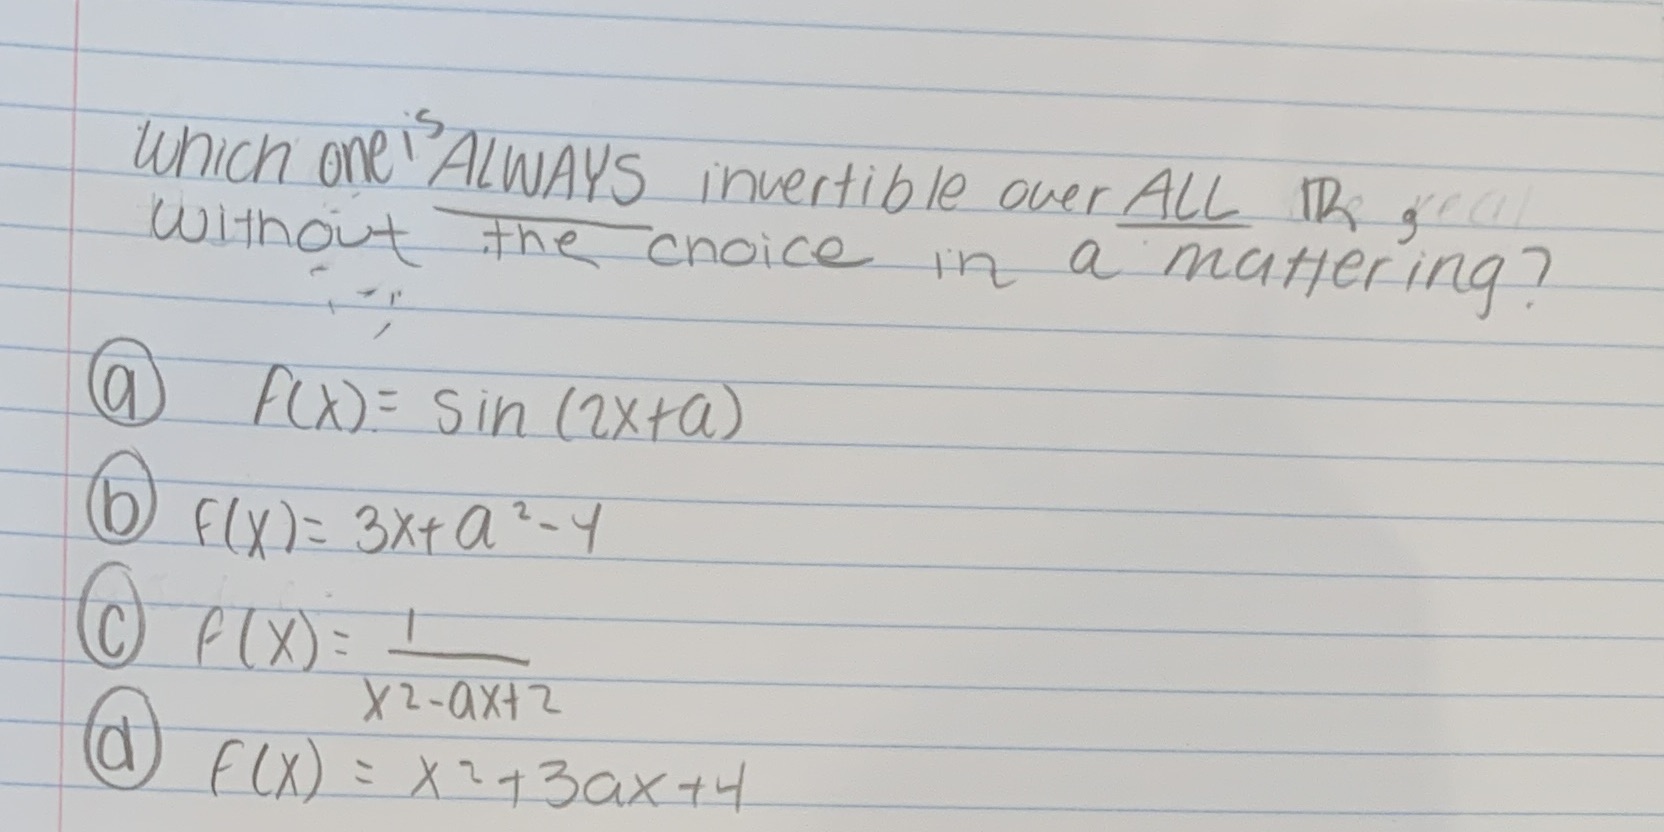 Which one is ALWAYS invertible over ALL ℝ
without the choice in a mattering?
ⓐ f(x) = sin (2x+a)
ⓑ f(x) = 3x + a² - 4
ⓒ f(x) = 1 / x² - ax + 2
ⓓ f(x) = x² + 3ax + 4